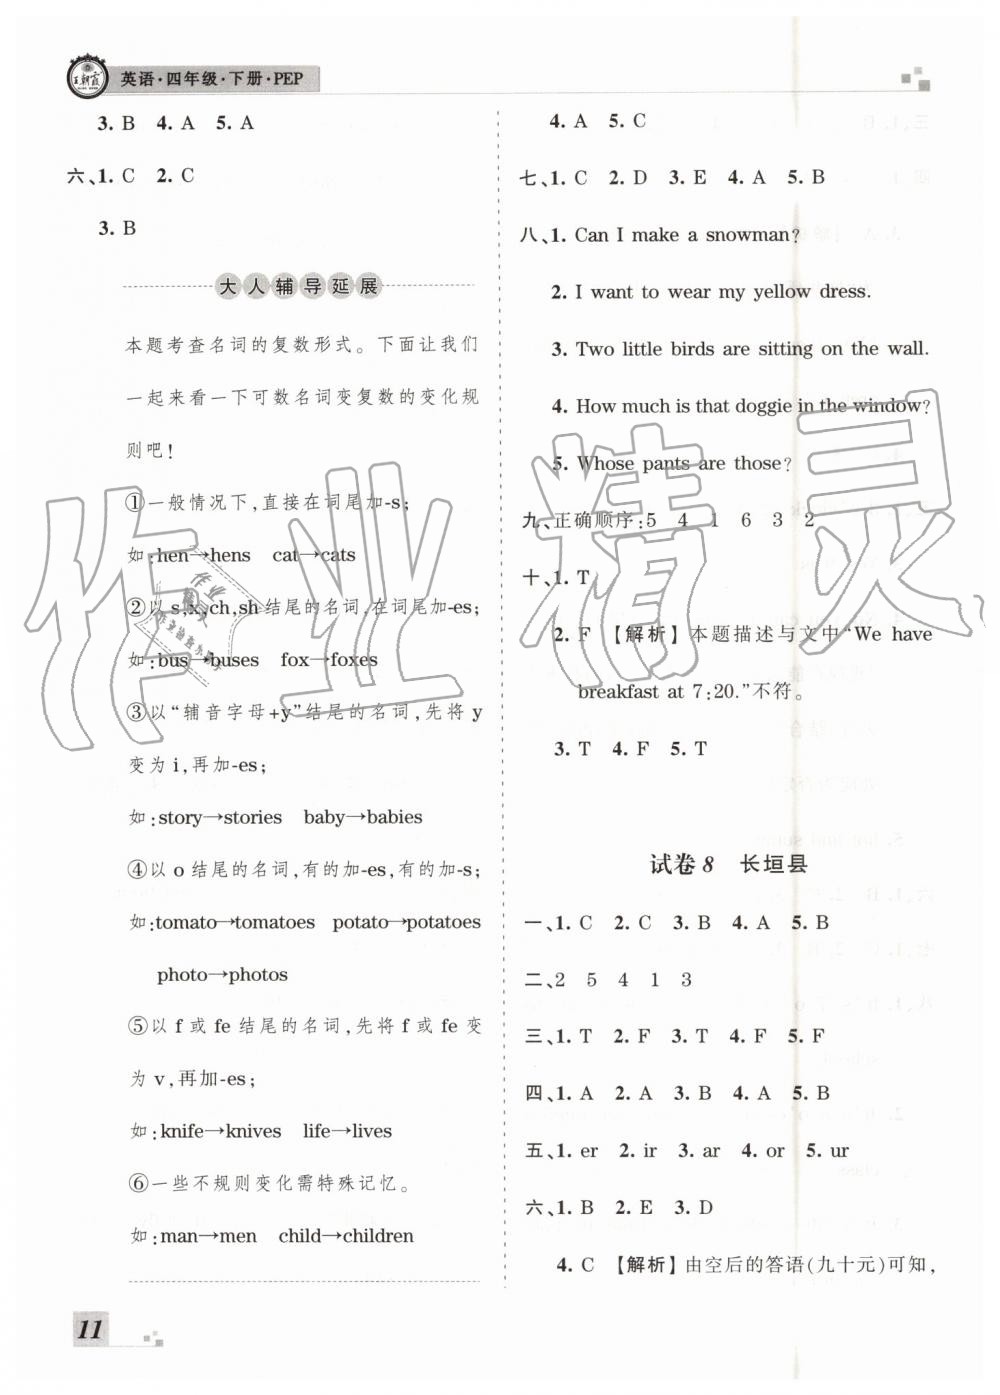 王朝霞
英语·四年级·下册·PEP
3. B 4. A 5. A
六、1. C 2. C
3. B
大人辅导延展
本题考查名词的复数形式。下面让我们
一起来看一下可数名词变复数的变化规
则吧!
①一般情况下,直接在词尾加-s;
如:hen→hens cat→cats
②以 s,x,ch,sh 结尾的名词,在词尾加-es;
如:bus→buses fox→foxes
③以“辅音字母+y”结尾的名词,先将 y
变为 i,再加-es;
如:story→stories baby→babies
④以 o 结尾的名词,有的加-es,有的加-s;
如:tomato→tomatoes potato→potatoes
photo→photos
⑤以 f 或 fe 结尾的名词,先将 f 或 fe 变
为 v,再加-es;
如:knife→knives life→lives
⑥一些不规则变化需特殊记忆。
如:man→men child→children
4. A 5. C
七、1. C 2. D 3. E 4. A 5. B
八、1. Can I make a snowman?
2. I want to wear my yellow dress.
3. Two little birds are sitting on the wall.
4. How much is that doggie in the window?
5. Whose pants are those?
九、正确顺序:5 4 1 6 3 2
十、1. T
2. F 【解析】本题描述与文中“We have
breakfast at 7:20.”不符。
3. T 4. F 5. T
试卷 8 长垣县
一、1. C 2. C 3. B 4. A 5. B
二、2 5 4 1 3
三、1. T 2. F 3. T 4. F 5. F
四、1. A 2. A 3. B 4. A 5. B
五、1. er 2. ir 3. ar 4. or 5. ur
六、1. B 2. E 3. D
4. C 【解析】由空后的答语(九十元)可知,
11
作业精灵